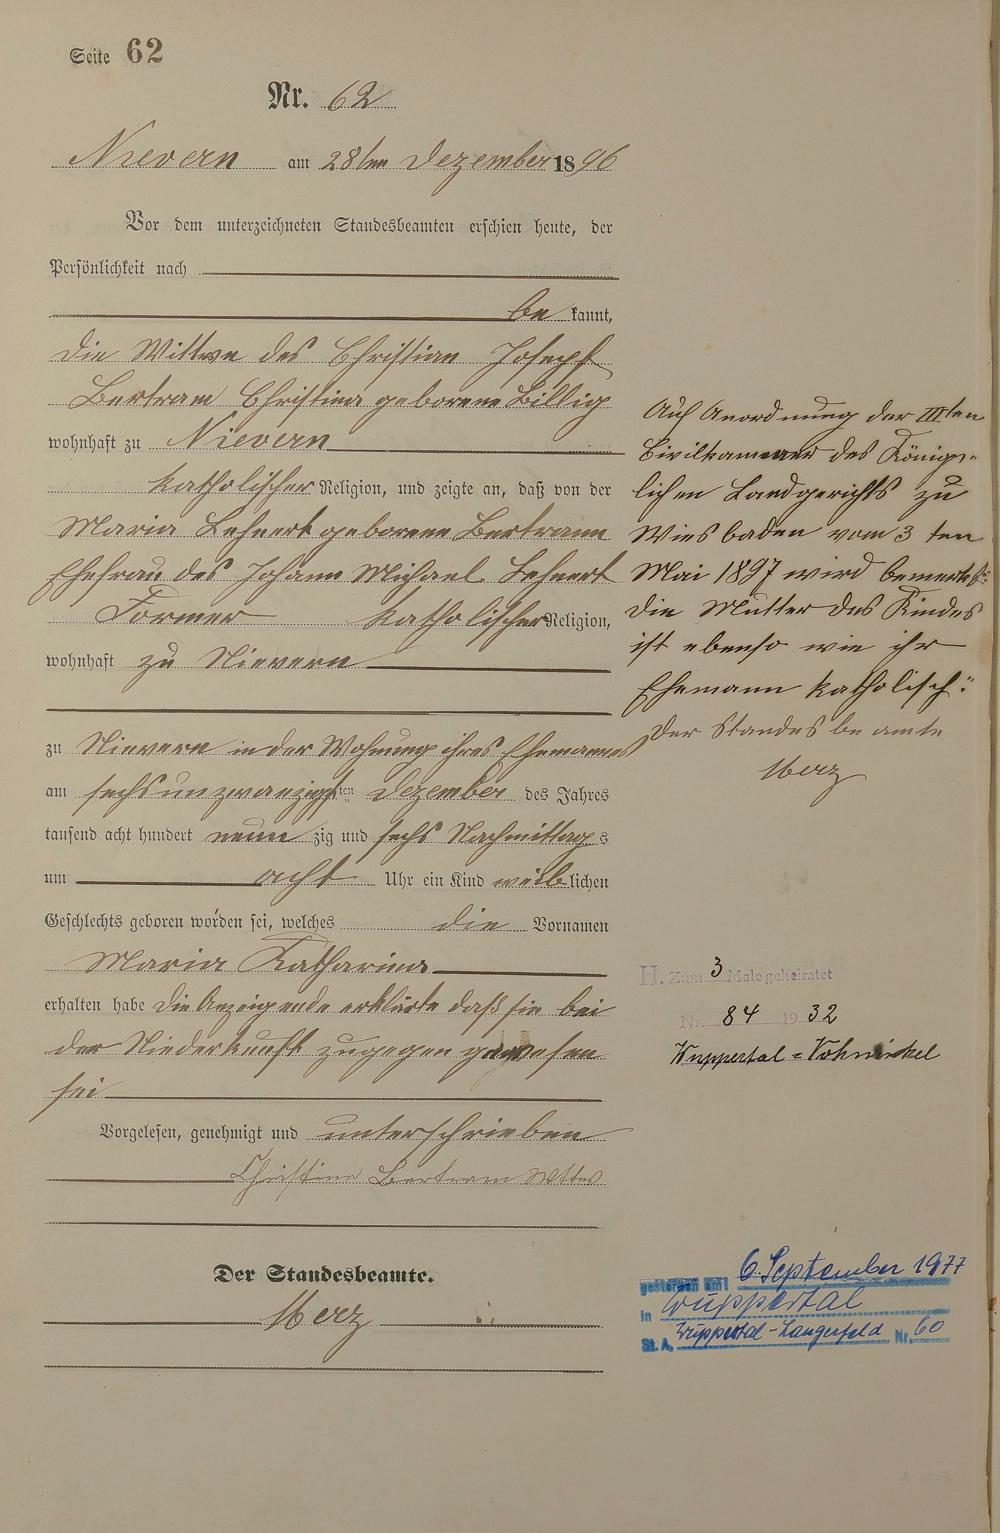 Seite 62
Nr. 62
Nievern am 28ten Dezember 1896
Vor dem unterzeichneten Standesbeamten erschien heute, der
Persönlichkeit nach
be kannt,
die Wittwe des Christian Joseph
Bertram Christina geborene Billig
wohnhaft zu Nievern
katholischer Religion, und zeigte an, daß von der
Maria Lehnert geborene Bertram
Ehefrau des Johann Michael Lehnert
Former katholischer Religion,
wohnhaft zu Nievern
zu Nievern in der Wohnung ihres Ehemannes
am sechsunzwanzigsten Dezember des Jahres
tausend acht hundert neun zig und sechs Nachmittag s
um acht Uhr ein Kind weiblichen
Geschlechts geboren worden sei, welches die Vornamen
Maria Katharina
erhalten habe die Anzeigende erklärte daß sie bei
der Niederkunft zugegen gewesen
sei
Vorgelesen, genehmigt und unterschrieben
Christina Bertram Wttwe
Der Standesbeamte.
Merz
Auf Anordnung der IIIten
Civilkammer des König-
lichen Landgerichts zu
Wiesbaden vom 3 ten
Mai 1897 wird bemerkt:
die Mutter des Kindes
ist ebenso wie ihr
Ehemann katholisch."
Der Standesbeamte
Merz
H. Zum 3 Male geheiratet
Nr. 84 1932
Wuppertal=Vohwinkel
gestorben am: 6. September 1977
in Wuppertal
St. A. Wuppertal-Langerfeld Nr. 60